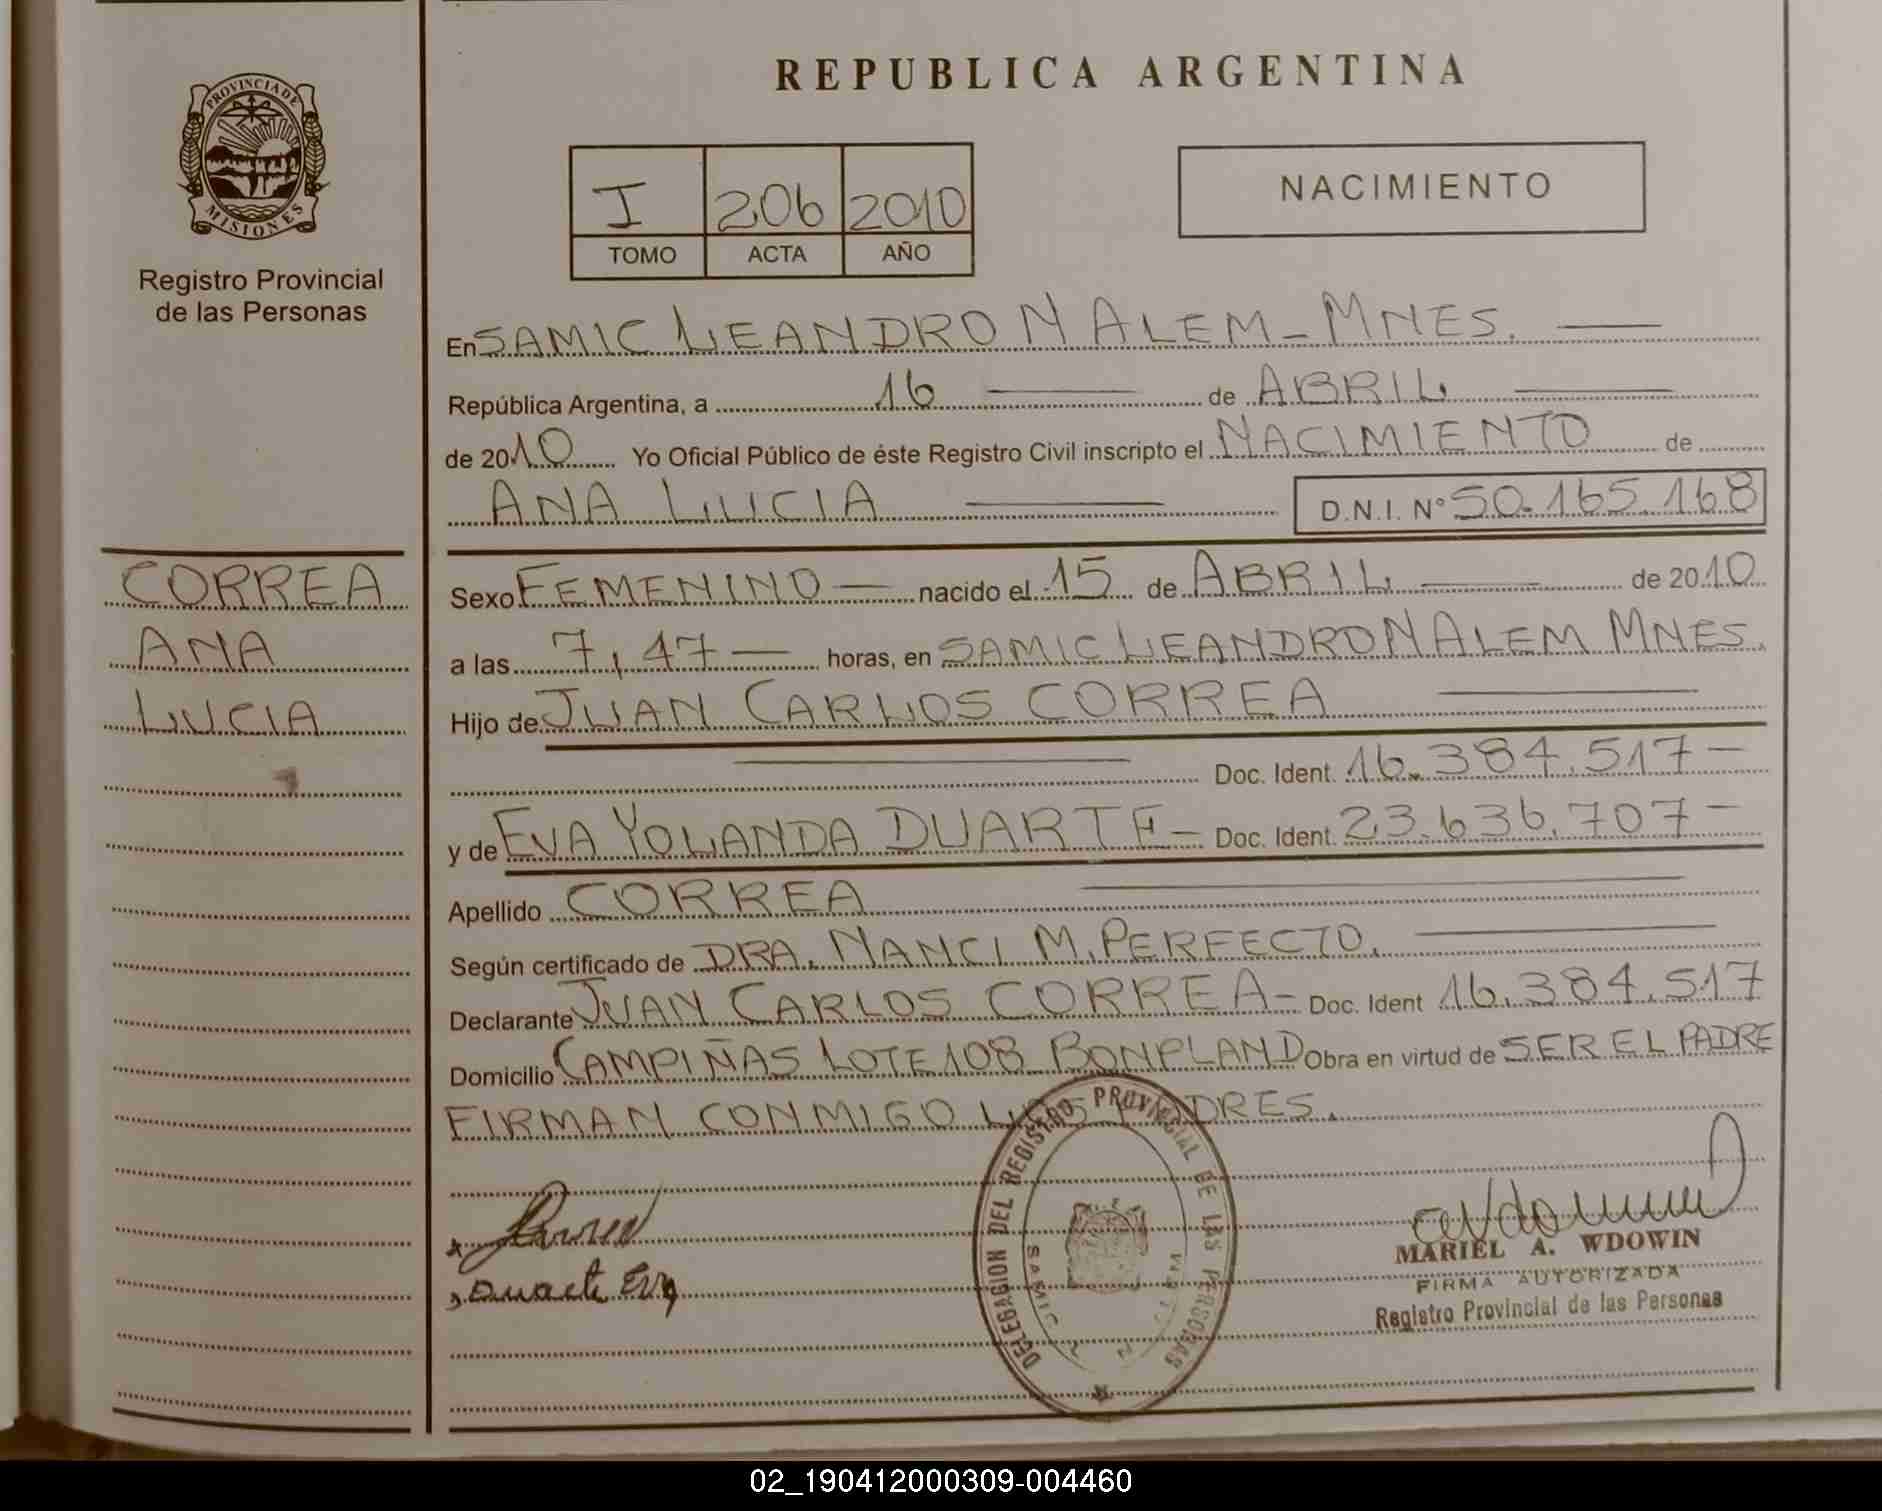 PROVINCIA DE
MISIONES
Registro Provincial
de las Personas
CORREA
ANA
LUCIA
REPUBLICA ARGENTINA
I 206 2010
TOMO ACTA AÑO
NACIMIENTO
En SAMIC LEANDRO N ALEM - MNES.
República Argentina, a 16 de ABRIL
de 2010 Yo Oficial Público de éste Registro Civil inscripto el NACIMIENTO de
ANA LUCIA D.N.I. Nº 50.165.168
Sexo FEMENINO nacido el 15 de ABRIL de 2010
a las 7,47 horas, en SAMIC LEANDRO N ALEM MNES.
Hijo de JUAN CARLOS CORREA
Doc. Ident. 16.384.517
y de EVA YOLANDA DUARTE Doc. Ident. 23.636.707
Apellido CORREA
Según certificado de DRA. NANCI M. PERFECTO.
Declarante JUAN CARLOS CORREA Doc. Ident 16.384.517
Domicilio CAMPIÑAS LOTE 108 BONPLAND Obra en virtud de SER EL PADRE
FIRMAN CONMIGO LOS PADRES.
Duarte Eva
DELEGACION DEL REGISTRO PROVINCIAL DE LAS PERSONAS
SAMIC
MARIEL A. WDOWIN
FIRMA AUTORIZADA
Registro Provincial de las Personas
02_190412000309-004460